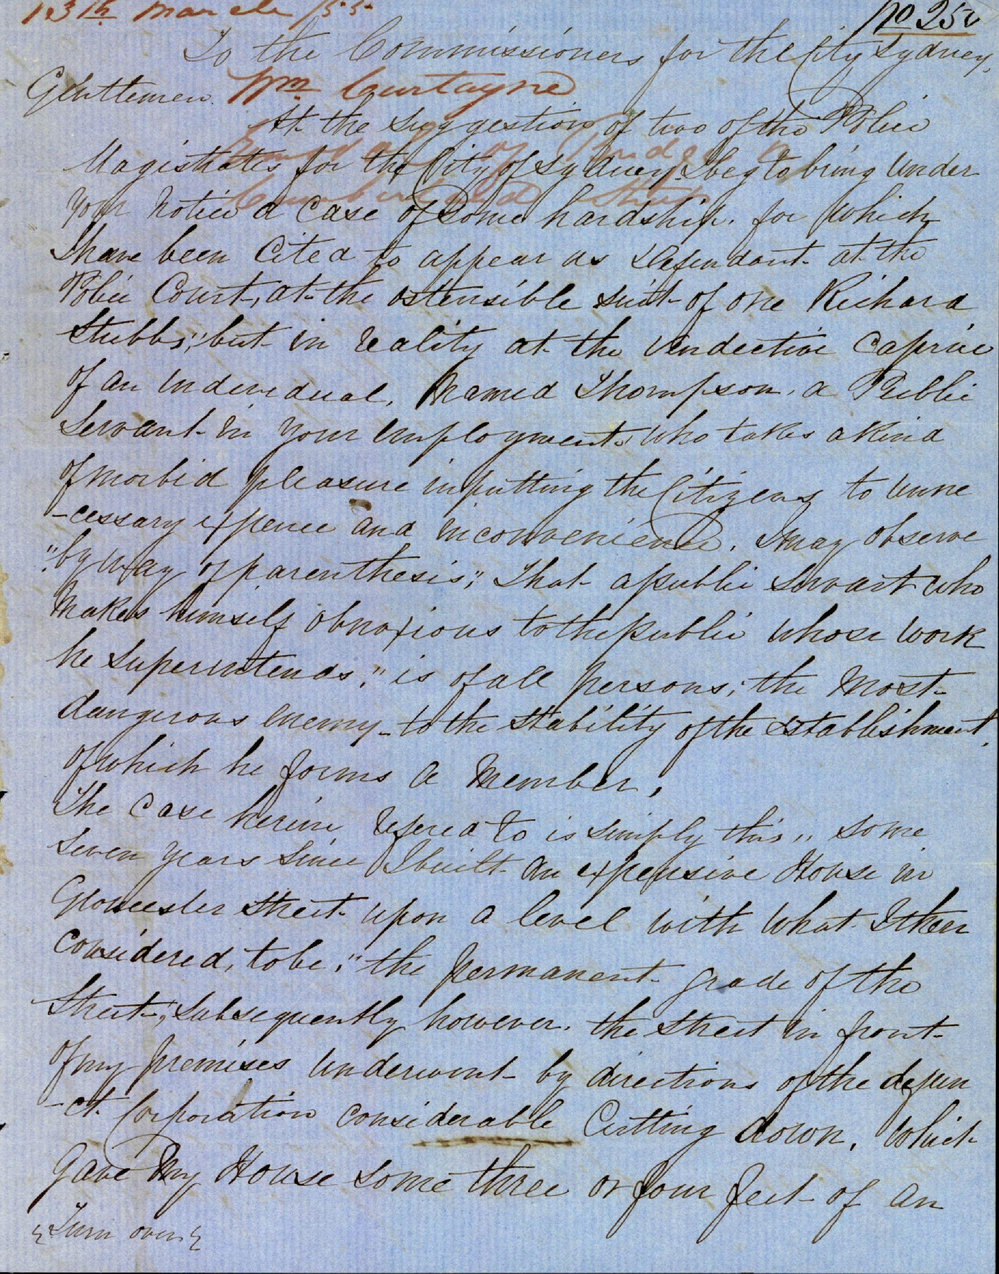 13th March /55
No 250
To the Commissioners for the City Sydney,
Gentlemen.
Wm Curtayne
At the Suggestion of two of the Police
Magistrates for the City of Sydney I beg to bring under
Your Notice a Case of Some hardship. for Which
I have been Cited to appear as Defendant at the
Police Court, at the ostensible suit of one Richard
Stubbs; but in reality at the Vindective Caprice
of an Individual. Named Thompson, a Public
Servant in Your Employment, who takes a kind
of morbid pleasure in putting the Citizens to unne
-cessary expence and inconvenience. I may observe
"by way of parenthesis;" That a public Servant who
Makes himself obnoxious to the public whose work
he Superintends," is of all persons; the Most
dangerous Enemy to the Stability of the Establishment,
of which he forms a Member.
The Case herein refered to is simply this,, some
Seven Years Since I built an expensive House in
Gloucester Street upon a level with What I then
Considered, to be," the permanent grade of the
Street," Subsequently however. the Street in front
of my premises Underwent by directions of the defun
-ct Corporation considerable Cutting down, Which
Gave My House some three or four feet of an
{Turn over}